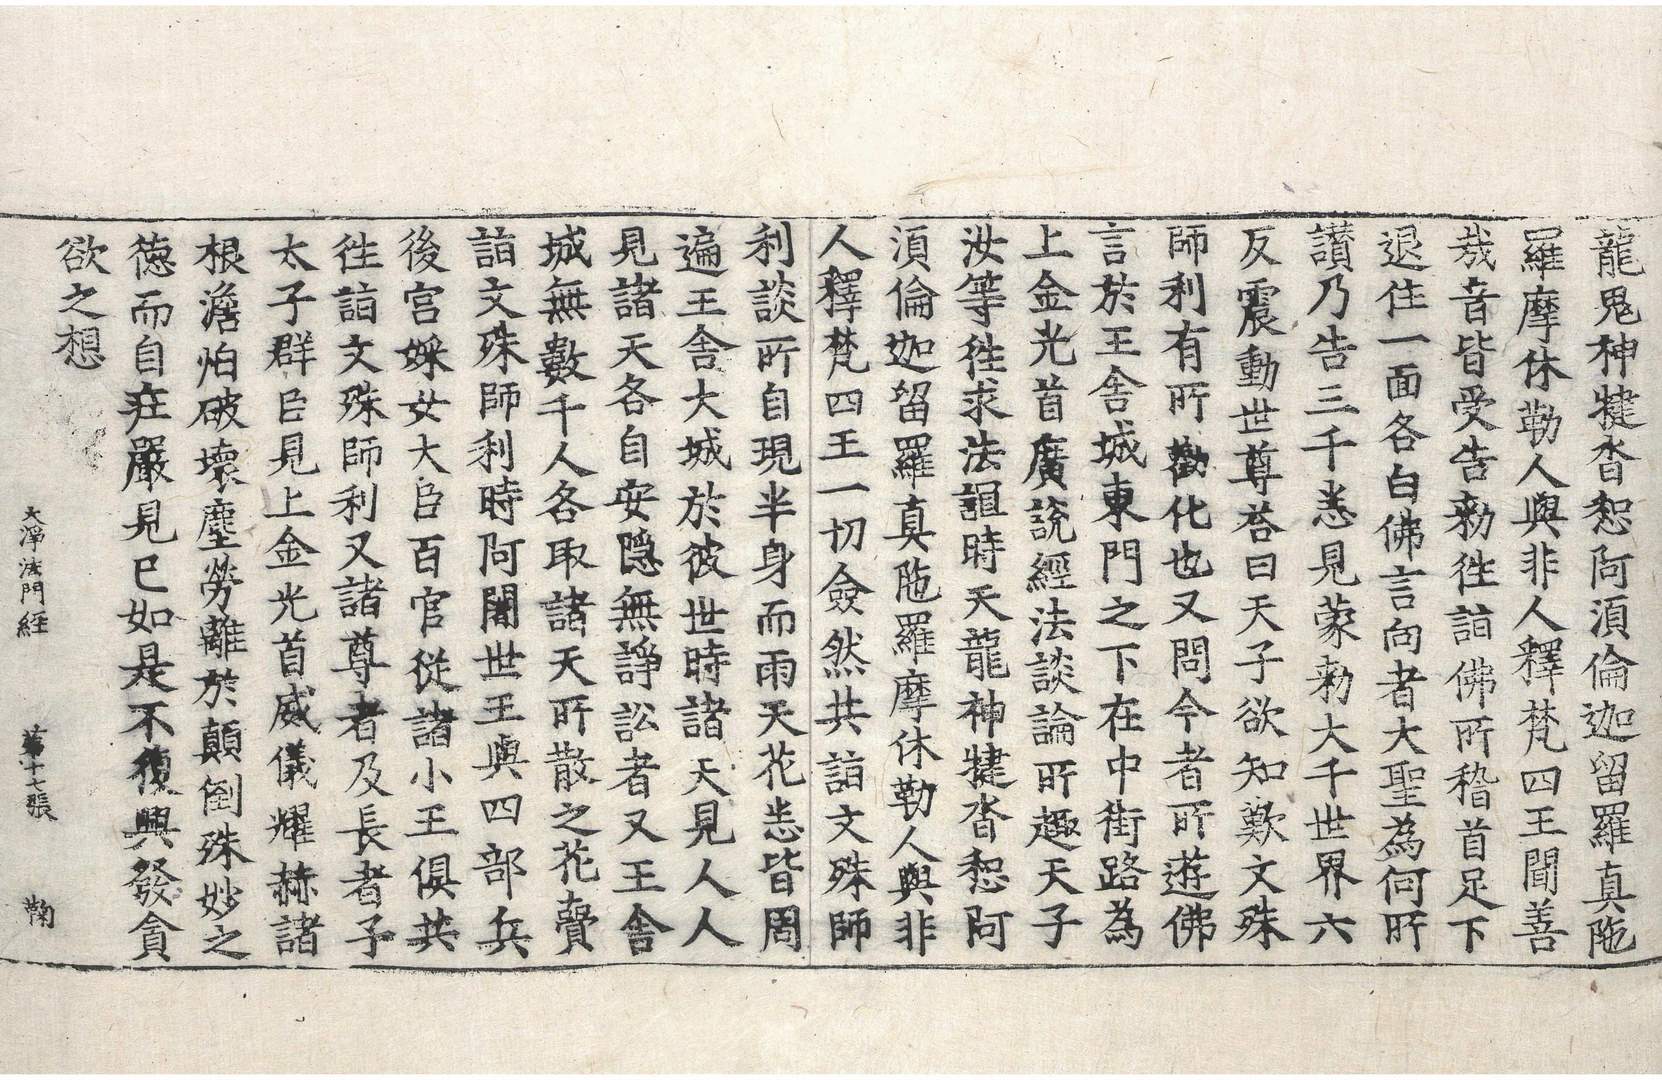 龍鬼神揵沓惒阿須倫迦留羅真陁
羅摩休勒人與非人釋梵四王聞善
哉音皆受告勑徃詣佛所稽首足下
退住一面各白佛言向者大聖為何所
讃乃告三千悉見蒙勑大千世界六
反震動世尊荅曰天子欲知歎文殊
師利有所勸化也又問今者所遊佛
言於王舍城東門之下在中街路為
上金光首廣說經法談論所趣天子
汝等徃求法誼時天龍神揵沓惒阿
須倫迦留羅真陁羅摩休勒人與非
人釋梵四王一切僉然共詣文殊師
利談所自現半身而雨天花悉皆周
遍王舍大城於彼世時諸天見人人
見諸天各自安隱無諍訟者又王舍
城無數千人各取諸天所散之花賷
詣文殊師利時阿闍世王與四部兵
後宮婇女大臣百官從諸小王俱共
徃詣文殊師利又諸尊者及長者子
太子群臣見上金光首威儀耀赫諸
根澹怕破壞塵勞離於顛倒殊妙之
德而自莊嚴見已如是不復興發貪
欲之想
大淨法門經 第十七張 鞠